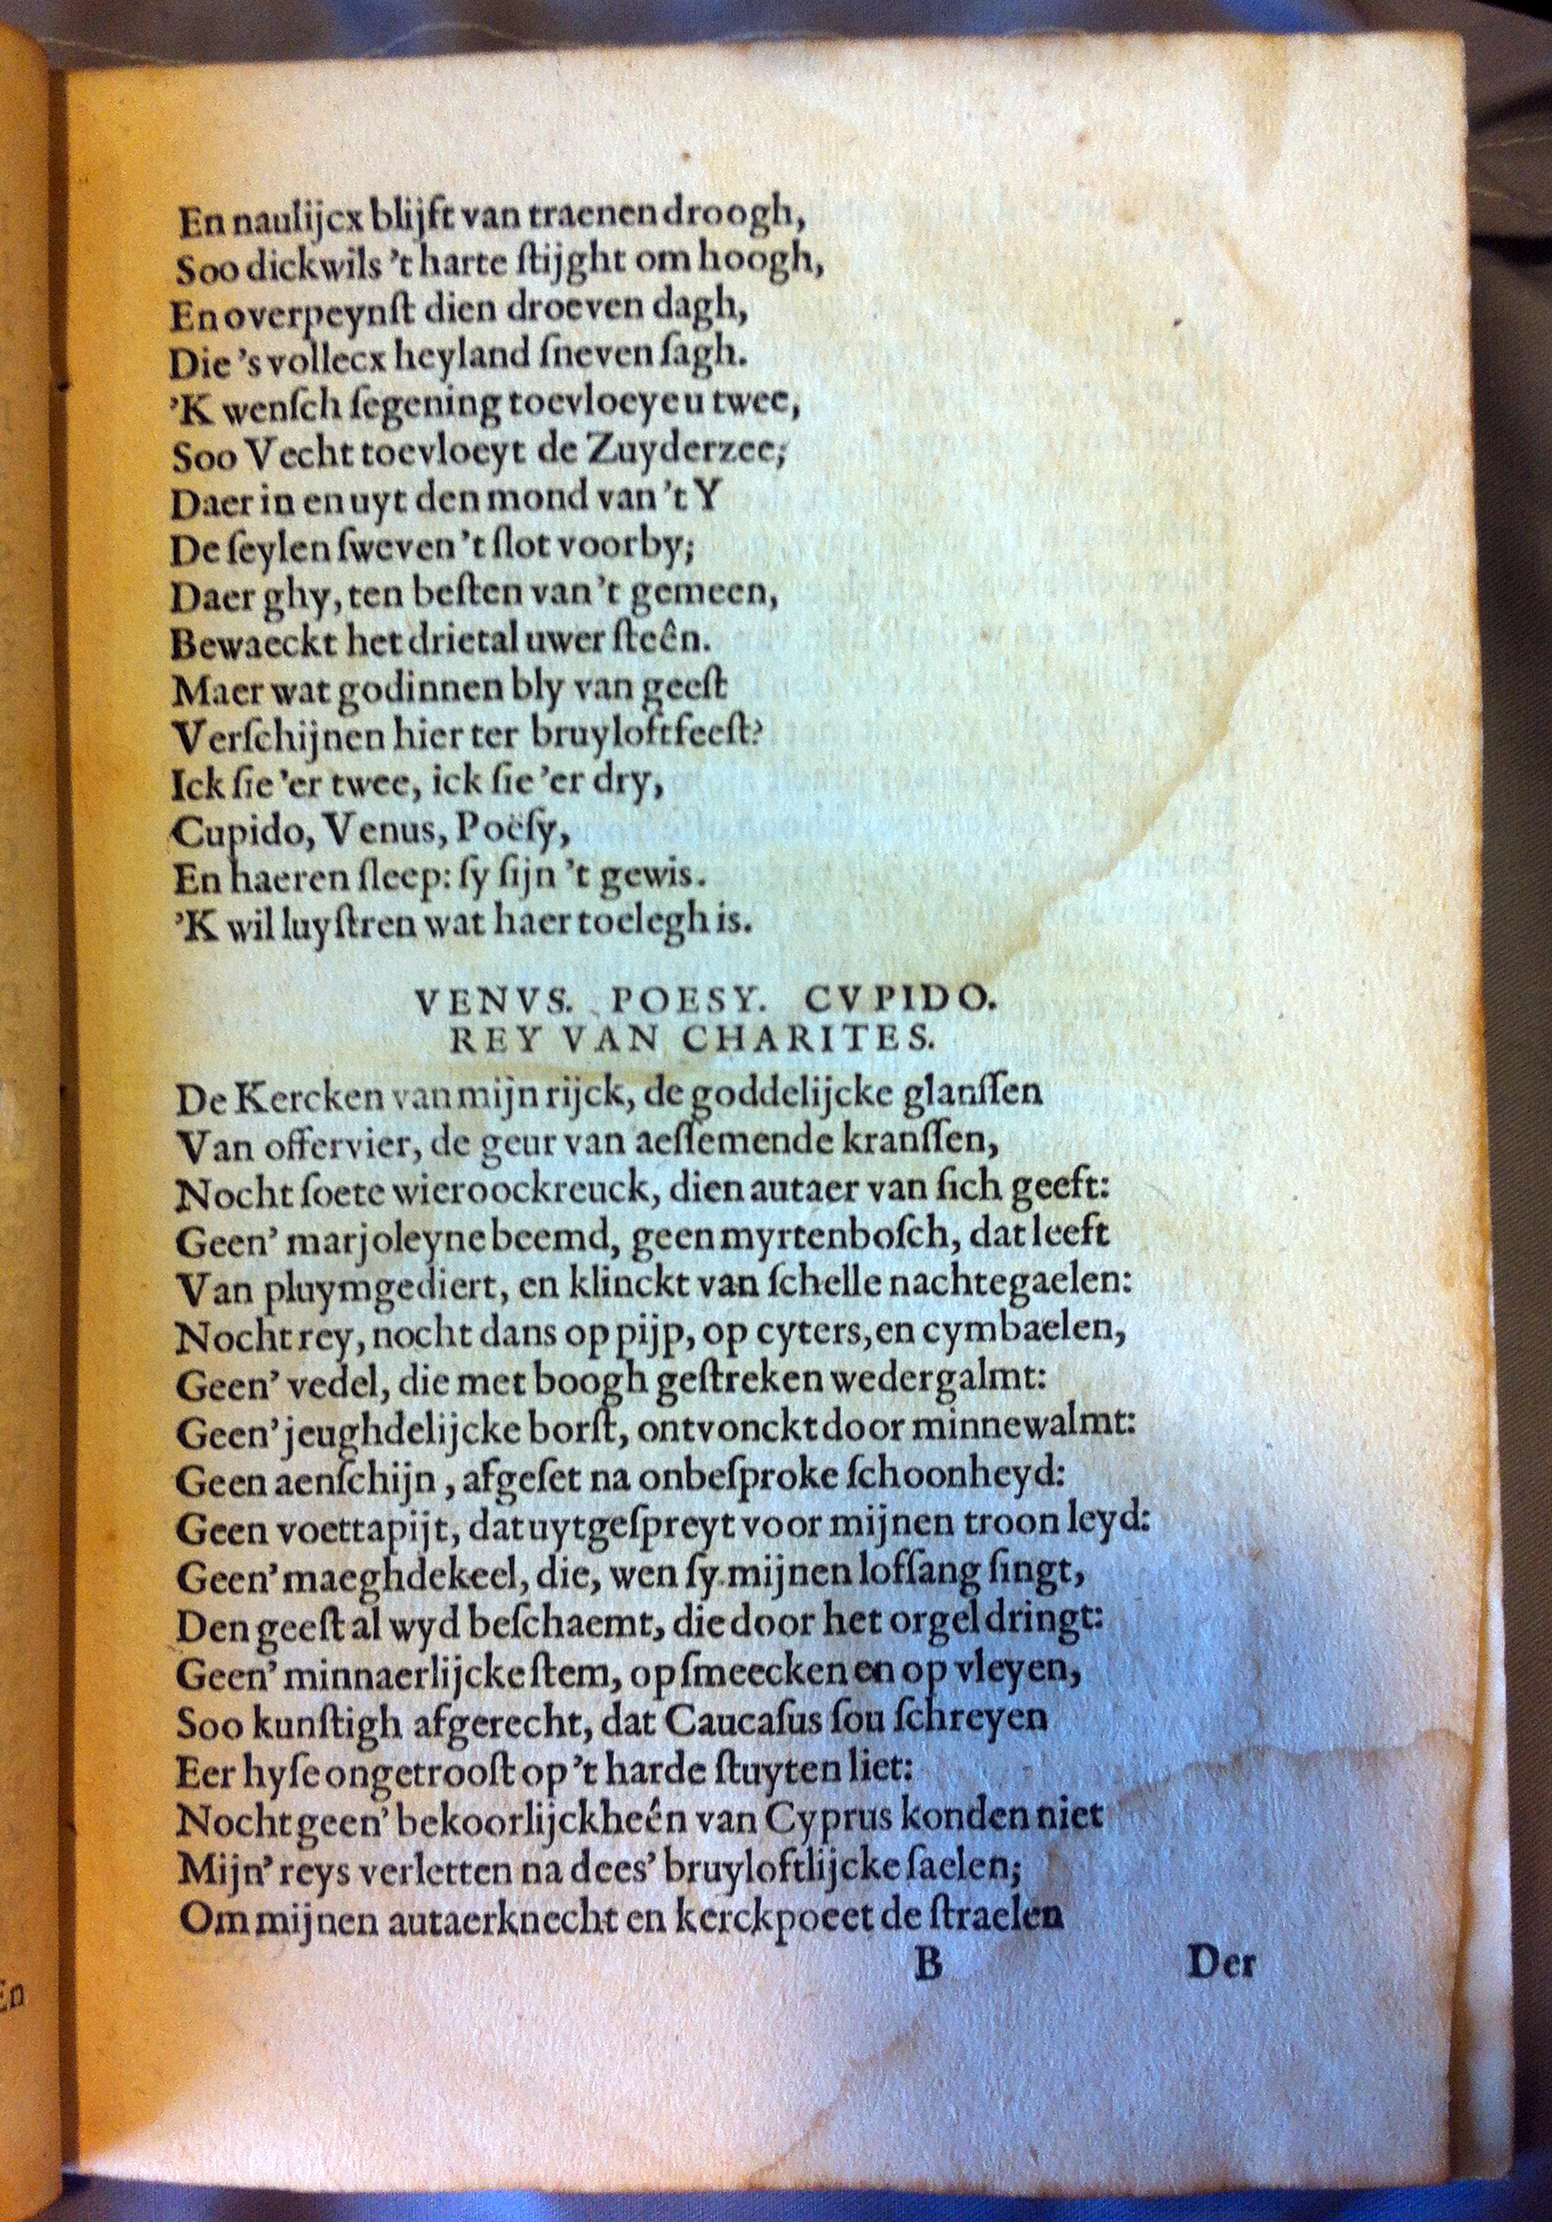 En naulijcx blijft van traenen droogh,
Soo dickwils ’t harte ſtijght om hoogh,
En overpeynſt dien droeven dagh,
Die ’s vollecx heyland ſneven ſagh.
’K wenſch ſegening toevloeye u twee,
Soo Vecht toevloeyt de Zuyderzee;
Daer in en uyt den mond van ’t Y
De ſeylen ſweven ’t ſlot voorby;
Daer ghy, ten beſten van ’t gemeen,
Bewaeckt het drietal uwer ſteên.
Maer wat godinnen bly van geeſt
Verſchijnen hier ter bruyloftfeeſt?
Ick ſie ’er twee, ick ſie ’er dry,
Cupido, Venus, Poëſy,
En haeren ſleep: ſy ſijn ’t gewis.
’K wil luyſtren wat haer toelegh is.
VENVS. POESY. CVPIDO.
REY VAN CHARITES.
De Kercken van mijn rijck, de goddelijcke glanſſen
Van offervier, de geur van aeſſemende kranſſen,
Nocht ſoete wieroockreuck, dien autaer van ſich geeft:
Geen’ marjoleyne beemd, geen myrtenboſch, dat leeft
Van pluymgediert, en klinckt van ſchelle nachtegaelen:
Nocht rey, nocht dans op pijp, op cyters, en cymbaelen,
Geen’ vedel, die met boogh geſtreken wedergalmt:
Geen’ jeughdelijcke borſt, ontvonckt door minnewalmt:
Geen aenſchijn, afgeſet na onbeſproke ſchoonheyd:
Geen voettapijt, dat uytgeſpreyt voor mijnen troon leyd:
Geen’ maeghdekeel, die, wen ſy mijnen lofſang ſingt,
Den geeſt al wyd beſchaemt, die door het orgel dringt:
Geen’ minnaerlijcke ſtem, op ſmeecken en op vleyen,
Soo kunſtigh afgerecht, dat Caucaſus ſou ſchreyen
Eer hyſe ongetrooſt op ’t harde ſtuyten liet:
Nocht geen’ bekoorlijckheên van Cyprus konden niet
Mijn’ reys verletten na dees’ bruyloftlijcke ſaelen;
Om mijnen autaerknecht en kerckpoeet de ſtraelen
B Der
En